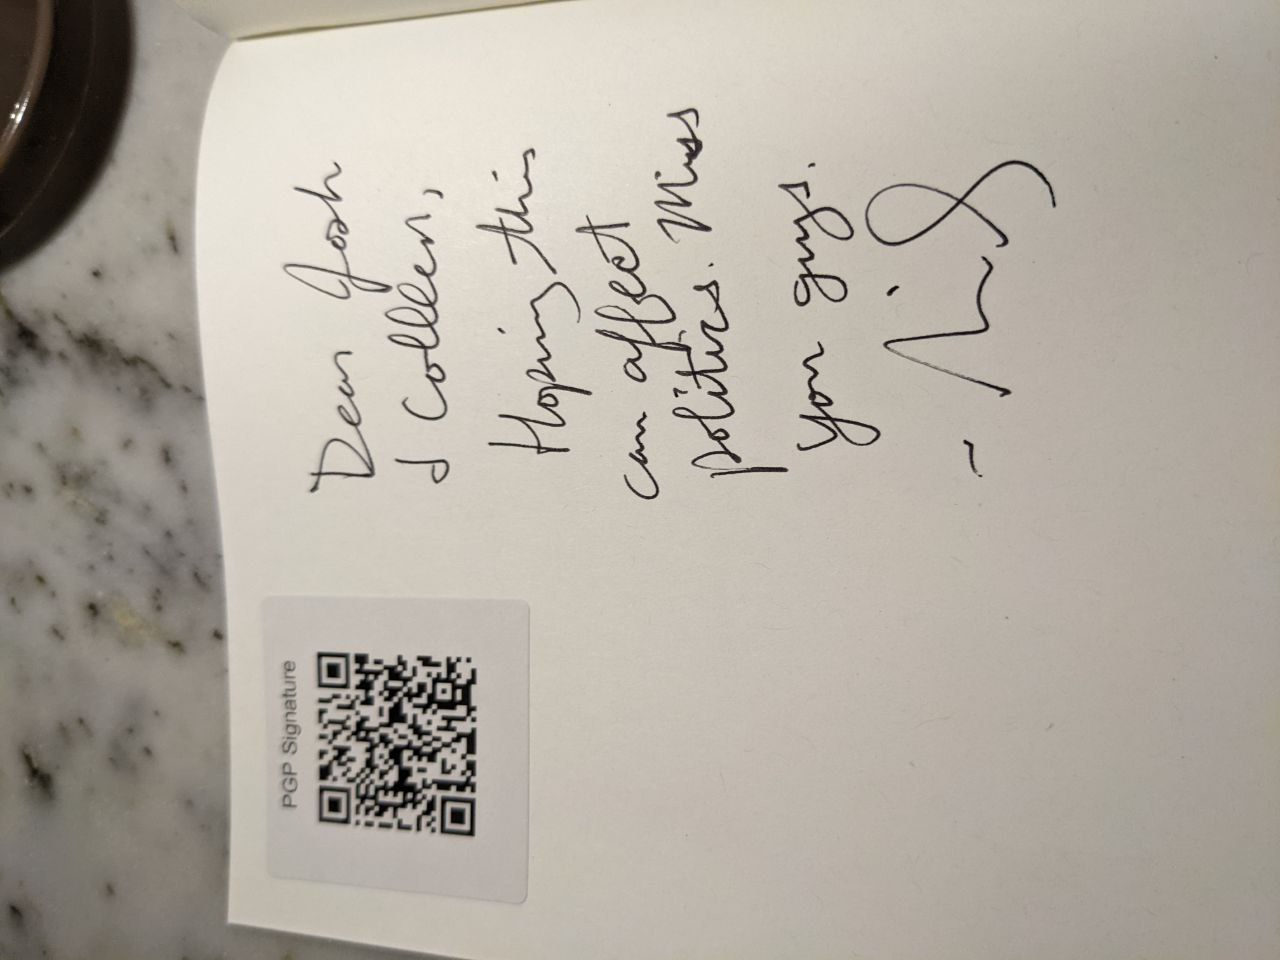 PGP Signature
Dear Josh
& Colleen,
Hoping this
can affect
politics. Miss
you guys.